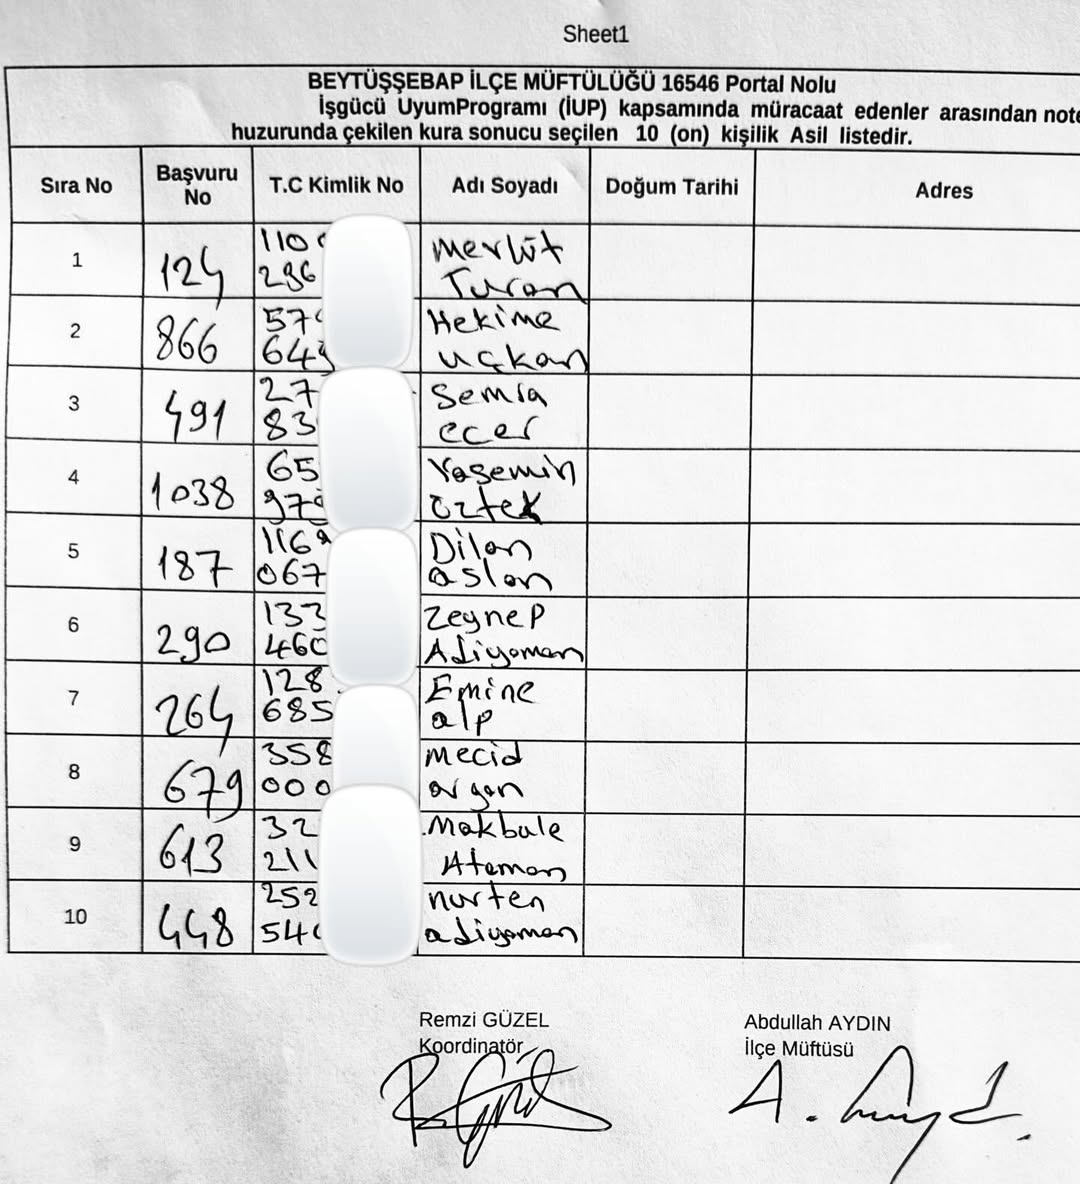 Sheet1
BEYTÜŞŞEBAP İLÇE MÜFTÜLÜĞÜ 16546 Portal Nolu
İşgücü UyumProgramı (İUP) kapsamında müracaat edenler arasından note
huzurunda çekilen kura sonucu seçilen 10 (on) kişilik Asil listedir.
Sıra No Başvuru No T.C Kimlik No Adı Soyadı Doğum Tarihi Adres
1 124 110 296 Mevlüt Turan
2 866 57 643 Hekime uçkan
3 491 27 83 Semra ecer
4 1038 65 97 Yasemin öztek
5 187 116 067 Dilan aslan
6 290 133 460 Zeynep Adiyaman
7 264 128 685 Emine alp
8 679 358 000 mecid argan
9 613 32 211 Makbule Ataman
10 448 252 54 nurten adiyaman
Remzi GÜZEL Abdullah AYDIN
Koordinatör İlçe Müftüsü